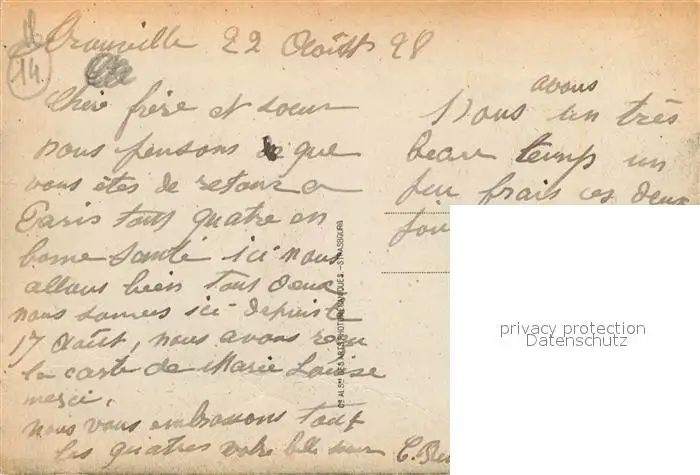 22 Août 28
14
Chère frère et soeur
nous pensons que
vous êtes de retour a
Paris tous quatre en
bonne santé ici nous
allons bien tous deux
nous sommes ici depuis le
17 Août, nous avons reçu
la carte de Marie Louise
merci,
nous vous embrassons tous
les quatres votre belle soeur
avons
Nous un très
beau temps un
peu frais ces deux
Cie ALSNE DES ARTS PHOTOMÉCANIQUES. - STRASBOURG
privacy protection
Datenschutz